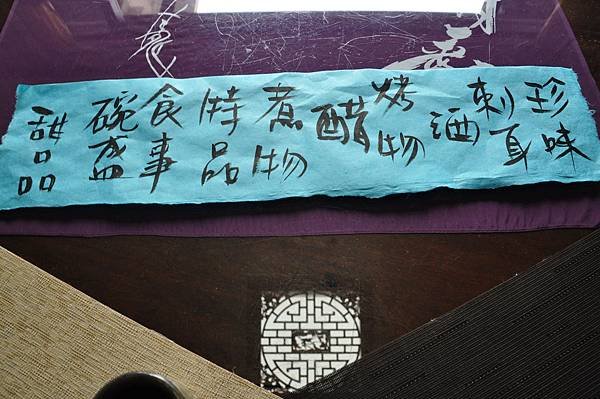 珍味
刺身
酒
烤物
醋
煮物
特品
食事
碗盛
甜品